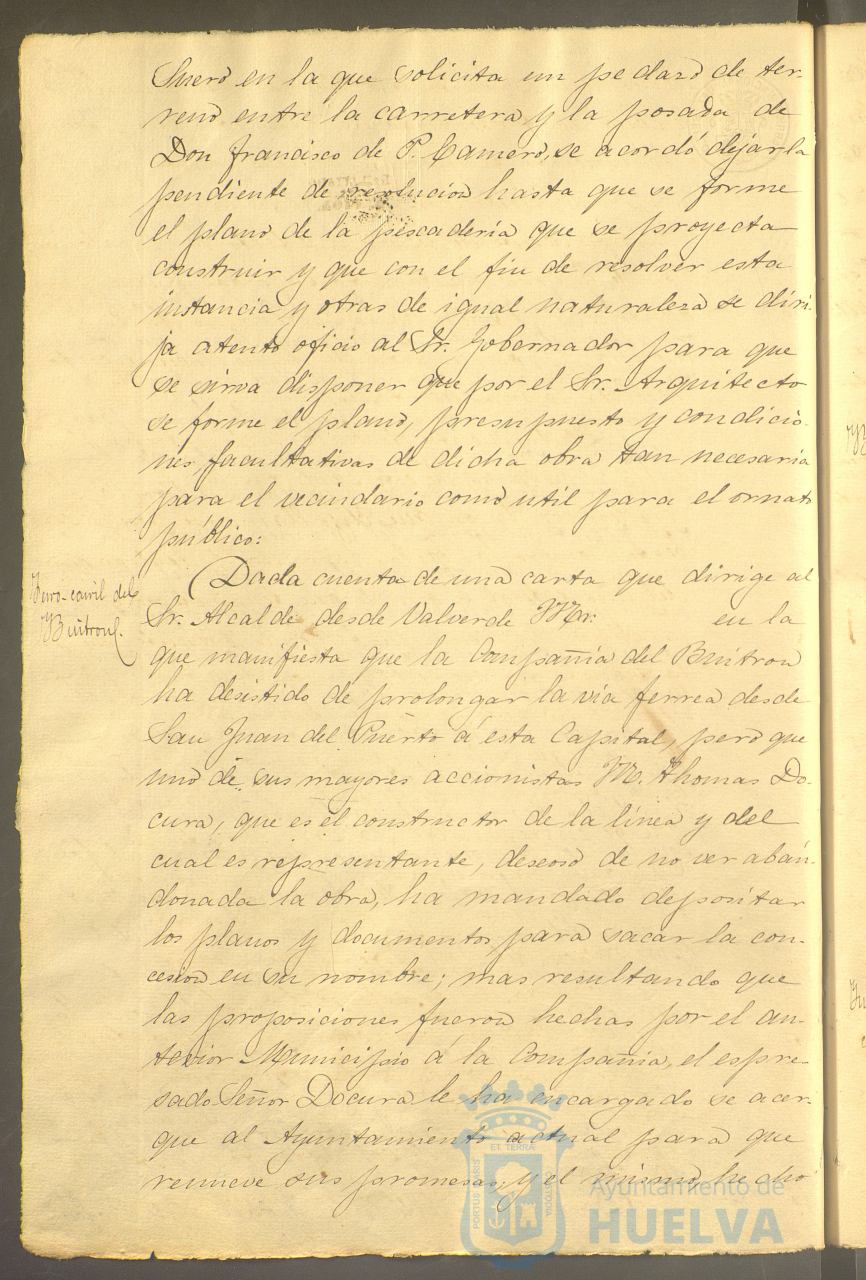 Suero en la que solicita un pedazo de ter-
reno entre la carretera y la posada de
Don Francisco de P. Camero, se acordó dejarla
pendiente de resolucion hasta que se forme
el plano de la pescadería que se proyecta
construir y que con el fin de resolver esta
instancia y otras de igual naturaleza se diri-
ja atento oficio al Sr. Gobernador para que
se sirva disponer que por el Sr. Arquitecto
se forme el plano, presupuesto y condicio-
nes facultativas de dicha obra tan necesaria
para el vecindario como util para el ornato
público:
Ferro-carril del
Buitron.
Dada cuenta de una carta que dirige al
Sr. Alcalde desde Valverde Mr. en la
que manifiesta que la Compañia del Buitron
ha desistido de prolongar la via ferrea desde
San Juan del Puerto á esta Capital, pero que
uno de sus mayores accionistas M. Thomas Do-
cura, que es el constructor de la línea y del
cual es representante, deseoso de no ver aban-
donada la obra, ha mandado depositar
los planos y documentos para sacar la con-
cesion en su nombre; mas resultando que
las proposiciones fueron hechas por el an-
terior Municipio á la Compañia, el espre-
sado Señor Docura le ha encargado se acer-
que al Ayuntamiento actual para que
renueve sus promesas; y el mismo, hecho
PORTUS MARIS
ET TERRA
CUSTODIA
Ayuntamiento de
HUELVA